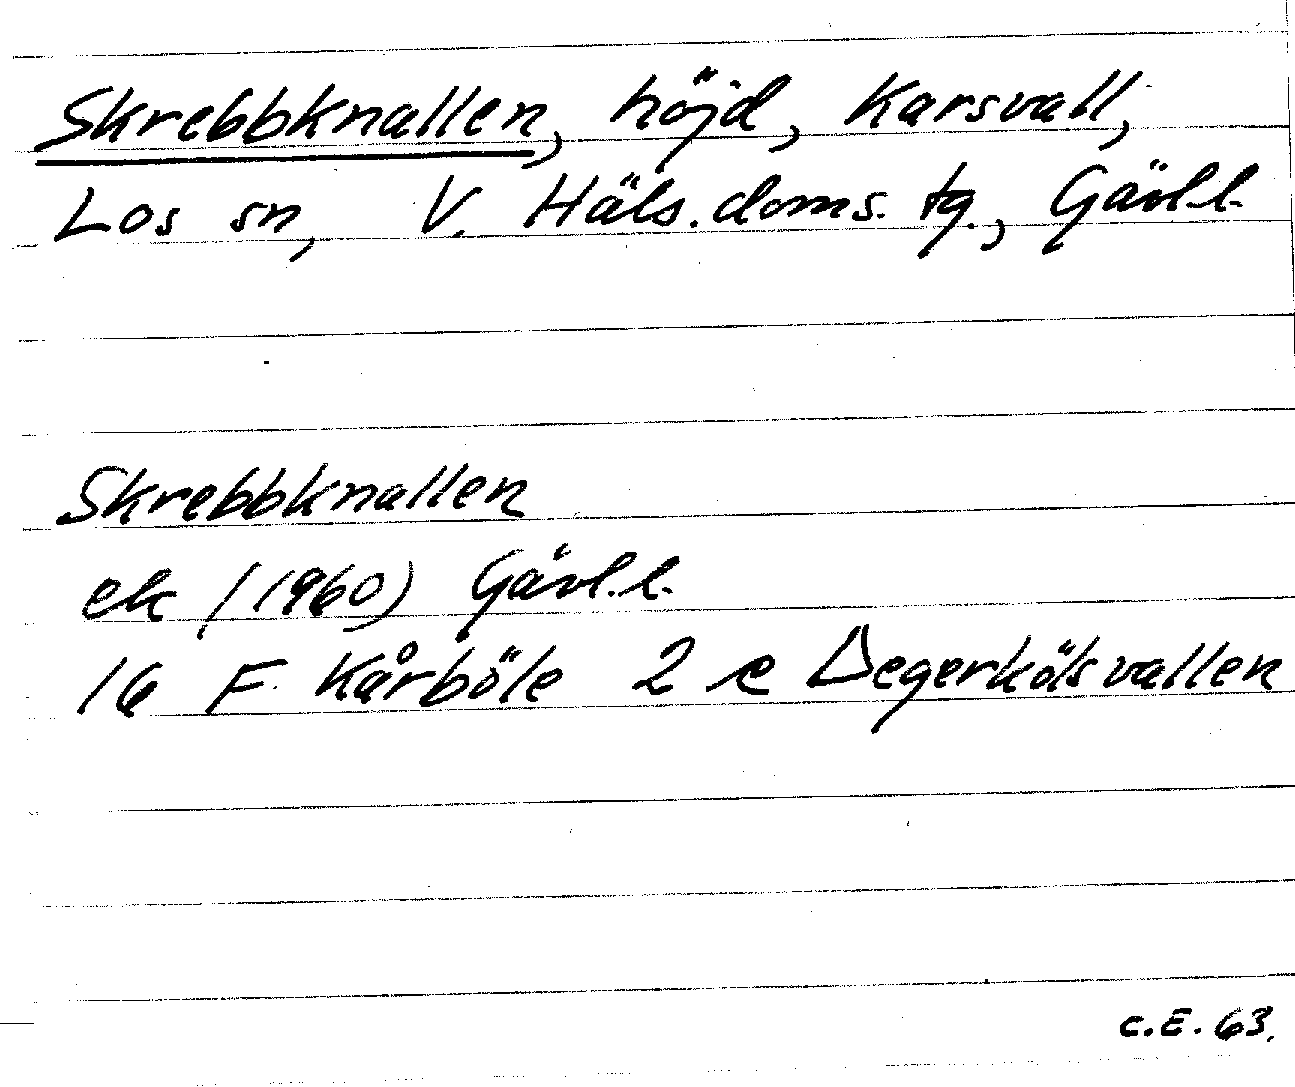 Skrebbknallen, höjd, Karsvall,
Los sn, V. Häls. doms. tg., Gävl.l.
Skrebbknallen
ek (1960) Gävl.l.
16 F Kårböle 2 e Degerkölsvallen
C.E. 63.